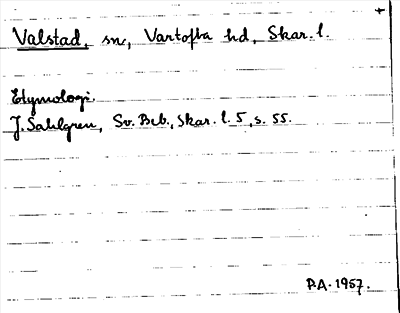 +
Valstad, sn, Vartofta hd, Skar. l.
Etymologi.
J. Sahlgren, Sv. Beb., Skar. l. 5, s. 55.
P.A. 1957.